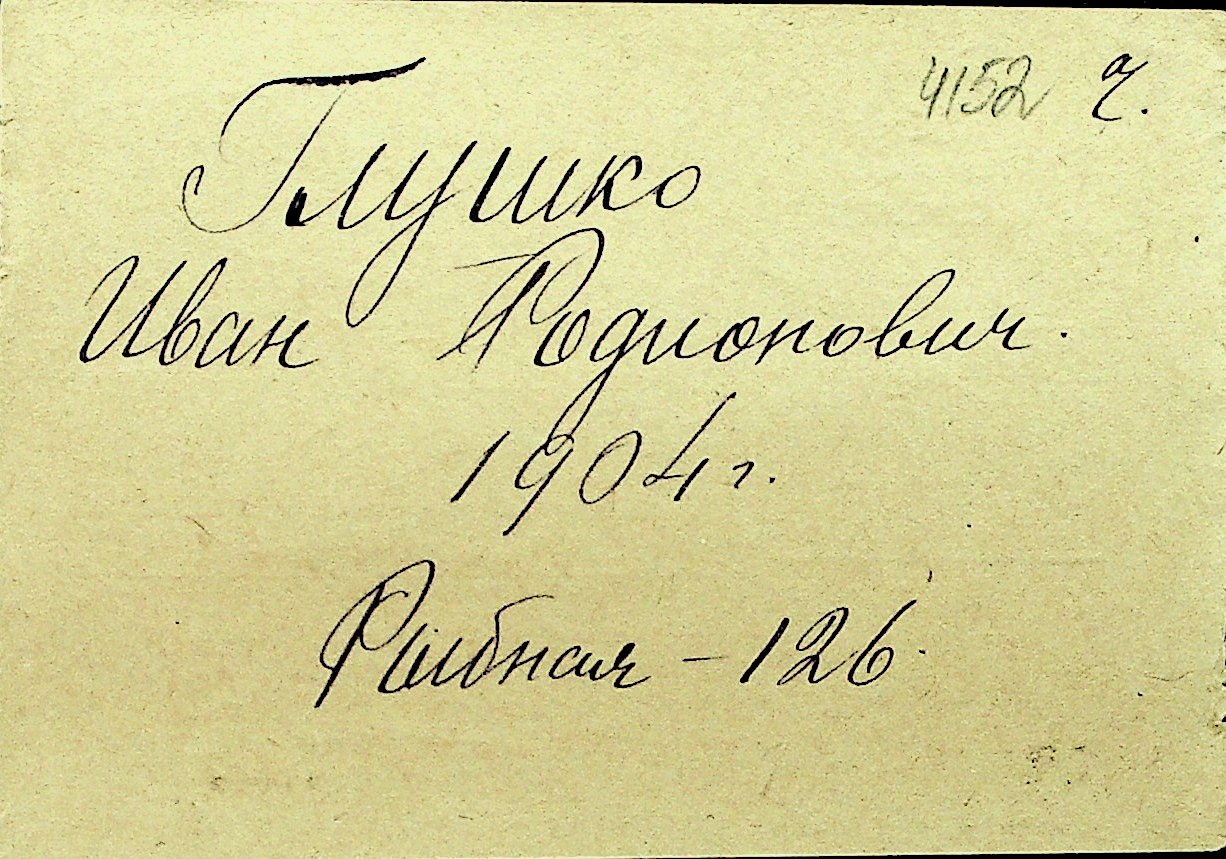 4152 г.
Глушко
Иван Родионович.
1904 г.
Рыбная - 126.